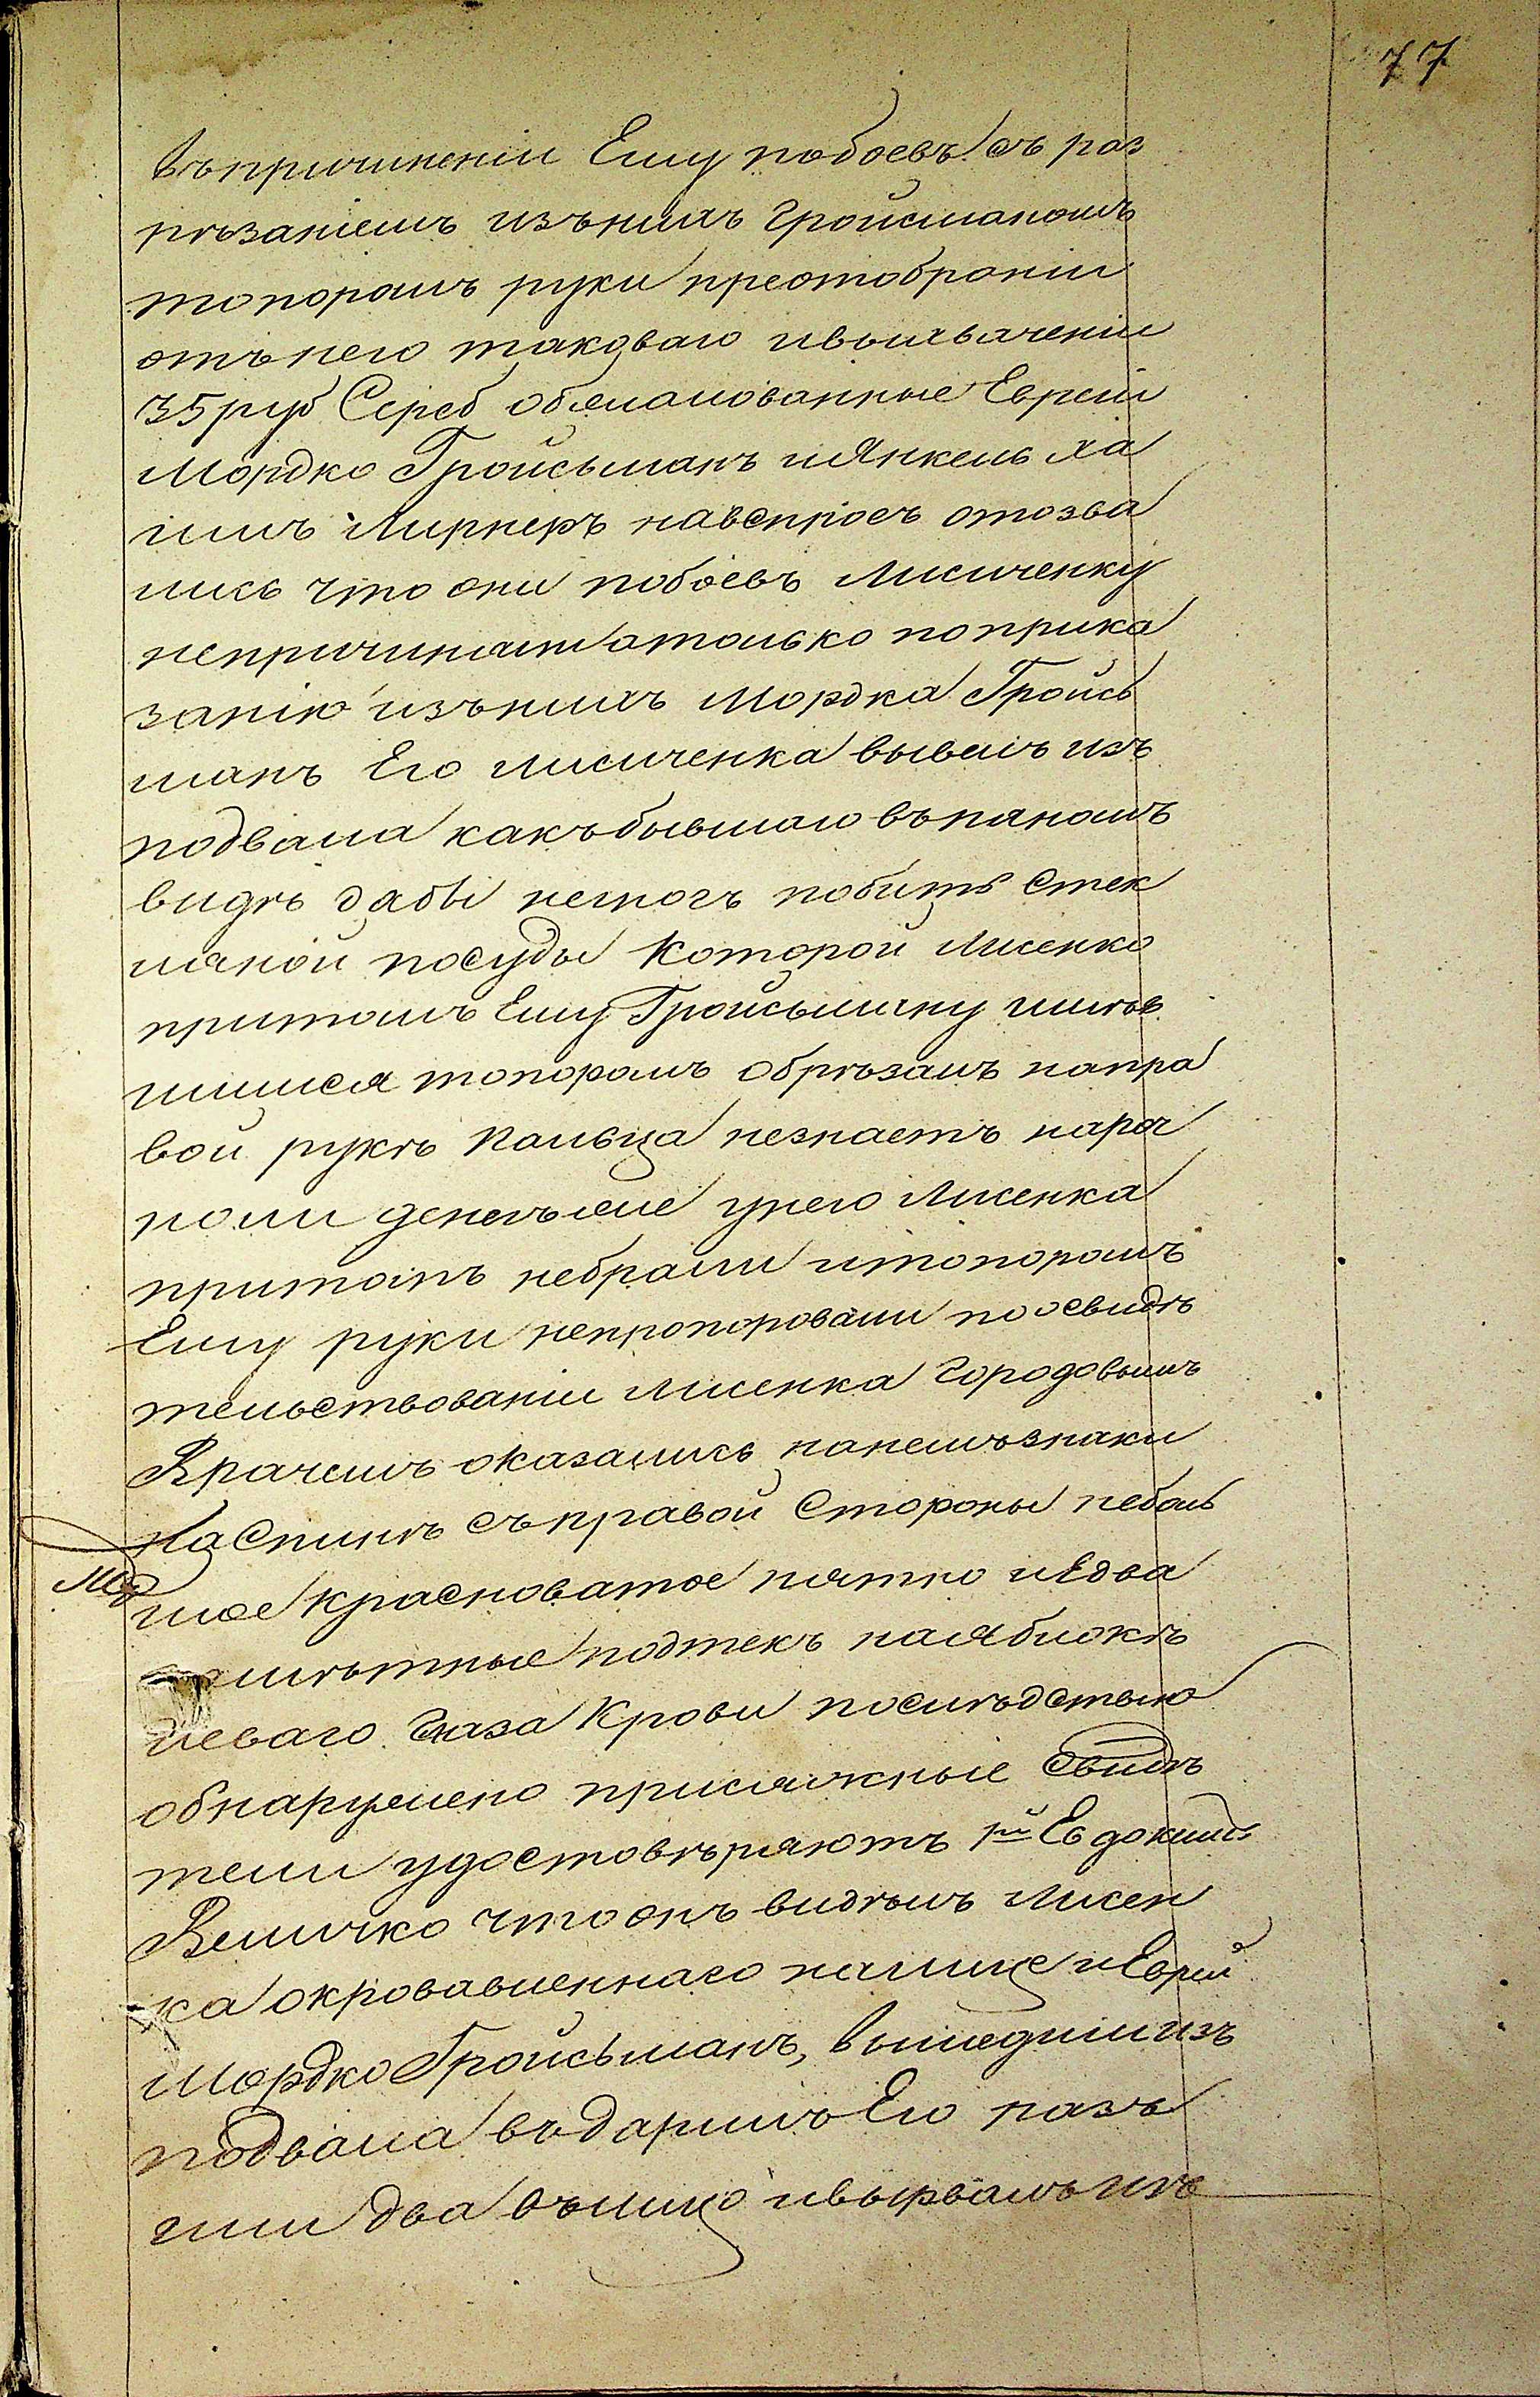 77
Въпричиненіи Ему побоевъ съ раз
рѣзаніемъ изънихъ Гройсманомъ
топоромъ руки преотобраніи
отънего таковаго ивыхваченіи
35 руб Сереб обжалованные Евреи
Мордко Гройсьманъ иЯнкель Ха
имъ Лирнеръ навспросъ отозва
лись что они побоевъ Лисиченку
непричиняли атолько поприка
занію изънихъ Мордка Гройсь
манъ Его Лисиченка вывелъ изъ
подвала какъбывшаго въпяномъ
видѣ дабы немогъ побить Стек
ляной посуды Которой Лисенко
притомъ Ему Гройсьману имѣв
шимся топоромъ обрѣзалъ напра
вой рукѣ Пальца незнаетъ нароч
ноли денегъже унего Лисенка
притомъ небрали итопоромъ
Ему руки непропоровали поосвидѣ
тельствованіи Лисенка Городовымъ
Врачемъ оказались нанемъзнаки
НаСпинѣ съправой Стороны неболь
шое Красноватое пятно иЕдва
замѣтные подтекъ наяблокѣ
леваго Глаза Крови послѣдствію
обнаружено присяжные Свидѣ
тели удостовѣряютъ 1й Евдокимъ
Величко чтоонъ видѣлъ Лисен
ка окровавленнаго налице иЕврей
Мордко Гройсьманъ, вышедшиизъ
подвала въдарилъ Его разъ
или два влицо ивырвалъ